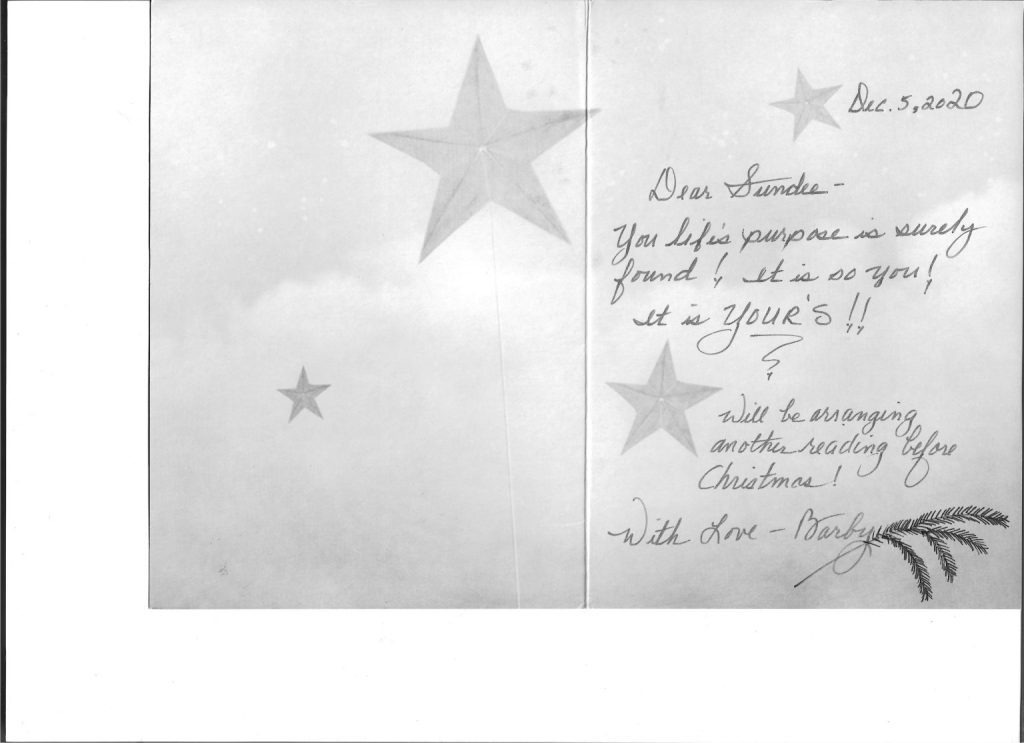 Dec. 5, 2020
Dear Sundee -
You life's purpose is surely
found! It is so you!
It is YOUR'S!!
Will be arranging
another reading before
Christmas!
With Love - Barby